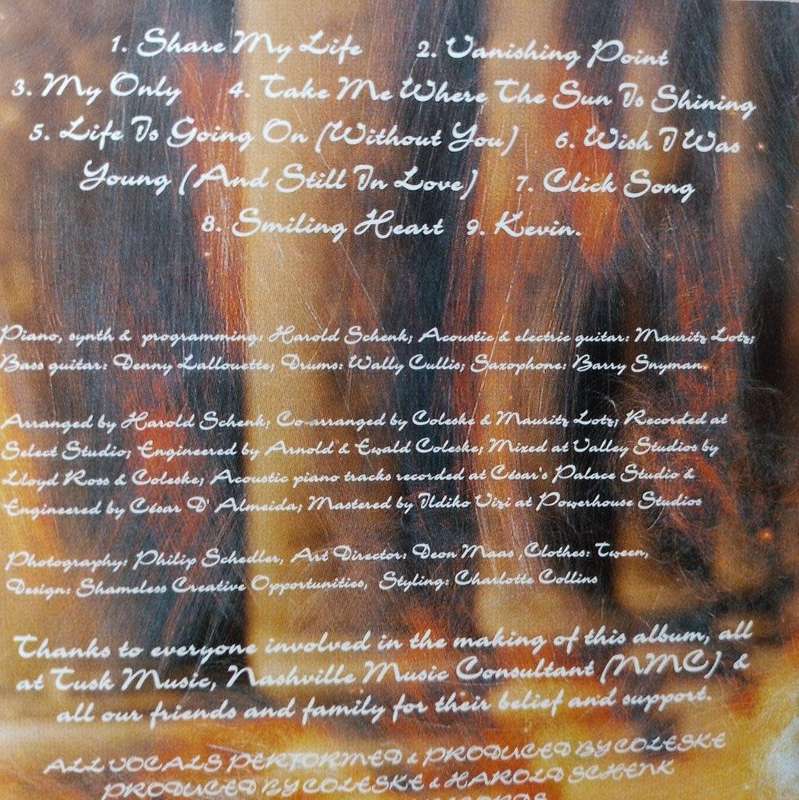 1. Share My Life 2. Vanishing Point
3. My Only 4. Take Me Where The Sun Is Shining
5. Life Is Going On (Without You) 6. Wish I Was
Young (And Still In Love) 7. Click Song
8. Smiling Heart 9. Kevin.
Piano, synth & programming: Harold Schenk; Acoustic & electric guitar: Mauritz Lotz;
Bass guitar: Denny Lallouette; Drums: Wally Cullis; Saxophone: Barry Snyman.
Arranged by Harold Schenk; Co-arranged by Coleske & Mauritz Lotz; Recorded at
Select Studio; Engineered by Arnold & Ewald Coleske; Mixed at Valley Studios by
Lloyd Ross & Coleske; Acoustic piano tracks recorded at César's Palace Studio &
Engineered by César D' Almeida; Mastered by Ildiko Vizi at Powerhouse Studios
Photography: Philip Schedler, Art Director: Deon Maas, Clothes: Tween,
Design: Shameless Creative Opportunities, Styling: Charlotte Collins
Thanks to everyone involved in the making of this album, all
at Tusk Music, Nashville Music Consultant (NMC) &
all our friends and family for their belief and support.
ALL VOCALS PERFORMED & PRODUCED BY COLESKE
PRODUCED BY COLESKE & HAROLD SCHENK